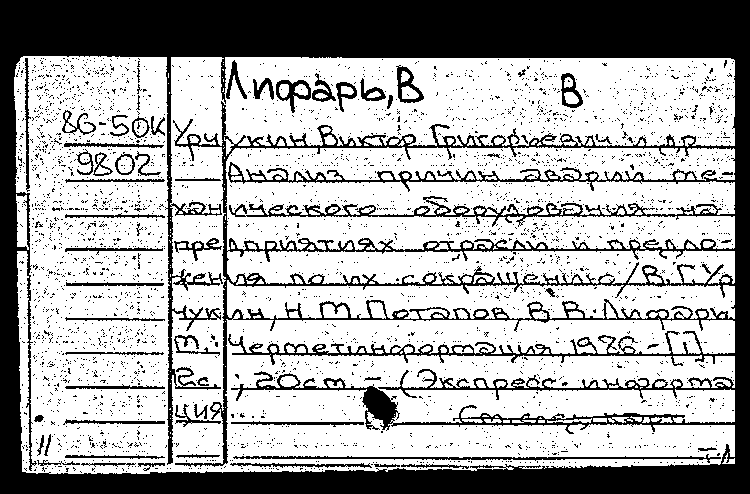 Лифарь, В В
86-50к Урчукин, Виктор Григорьевич и др
9802 Анализ причин аварий ме-
ханического оборудования на
предприятиях отрасли и предло-
жения по их сокращению / В.Г. Ур
чукин, Н.М. Потапов, В.В. Лифарь
М.: Черметинформация, 1986. - [1],
12с. ; 20см. - (Экспресс-информа
ция ....
См. след. карт.
11